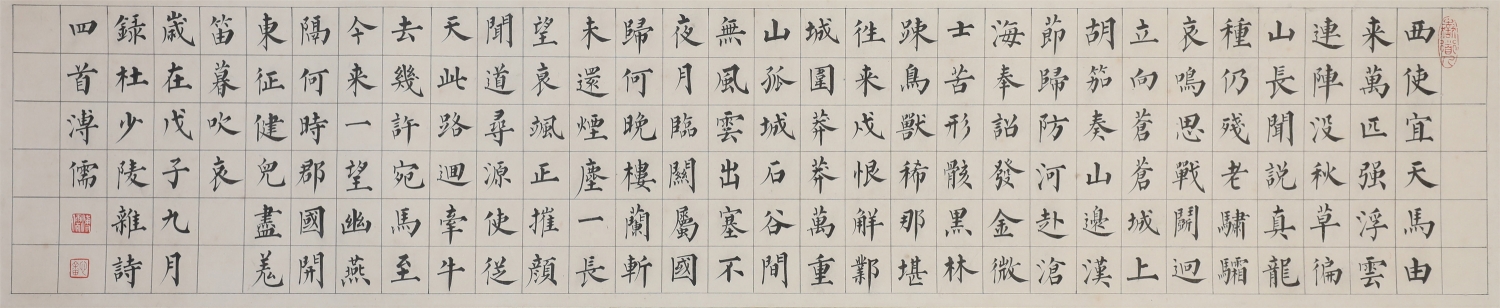 西使宜天馬由
来萬匹强浮雲
連陣没秋草徧
山長聞説真龍
種仍殘老驌驦
哀鳴思戰鬭迥
立向蒼蒼城上
胡笳奏山邊漢
節歸防河赴滄
海奉詔發金微
士苦形骸黑林
踈鳥獸稀那堪
徃来戍恨解鄴
城圍莽莽萬重
山孤城石谷間
無風雲出塞不
夜月臨關屬國
歸何晚樓蘭斬
未還煙塵一長
望哀颯正摧顔
聞道尋源使従
天此路迴牽牛
去幾許宛馬至
今来一望幽燕
隔何時郡國開
東征健兒盡羗
笛暮吹哀
歲在戊子九月
録杜少陵雜詩
四首溥儒